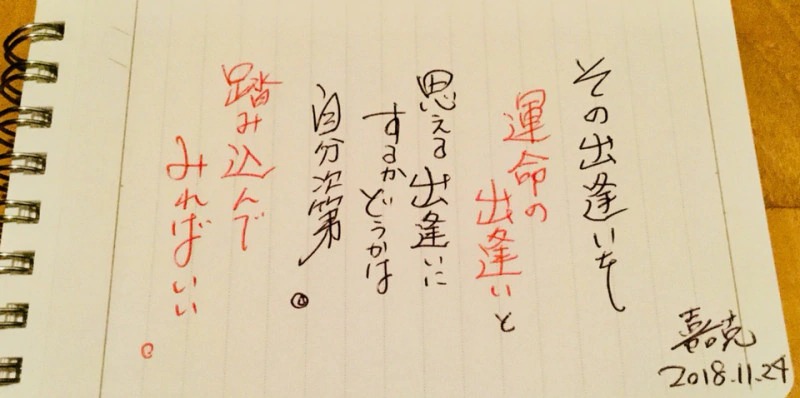 その出逢いを
運命の
出逢いと
思える出逢いに
するかどうかは
自分次第。
踏み込んで
みればいい
。
喜克
2018.11.24